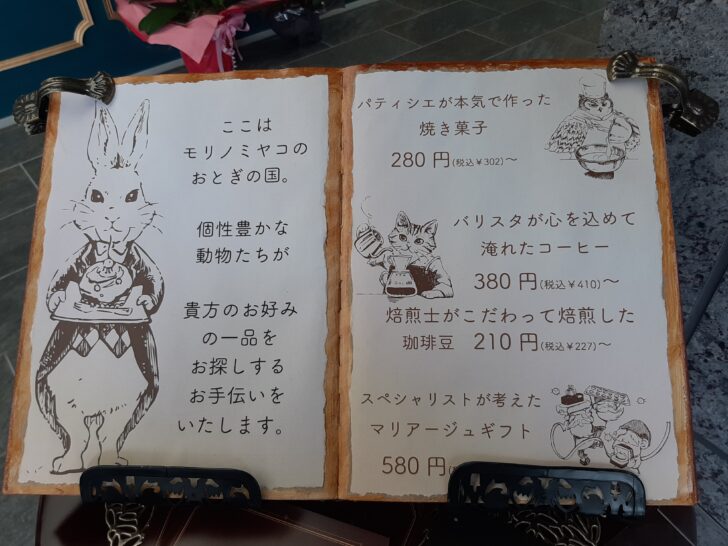 ここは
モリノミヤコの
おとぎの国。
個性豊かな
動物たちが
貴方のお好み
の一品を
お探しする
お手伝いを
いたします。
パティシエが本気で作った
焼き菓子
280 円(税込¥302)～
バリスタが心を込めて
淹れたコーヒー
380 円(税込¥410)～
焙煎士がこだわって焙煎した
珈琲豆 210 円(税込¥227)～
スペシャリストが考えた
マリアージュギフト
580 円